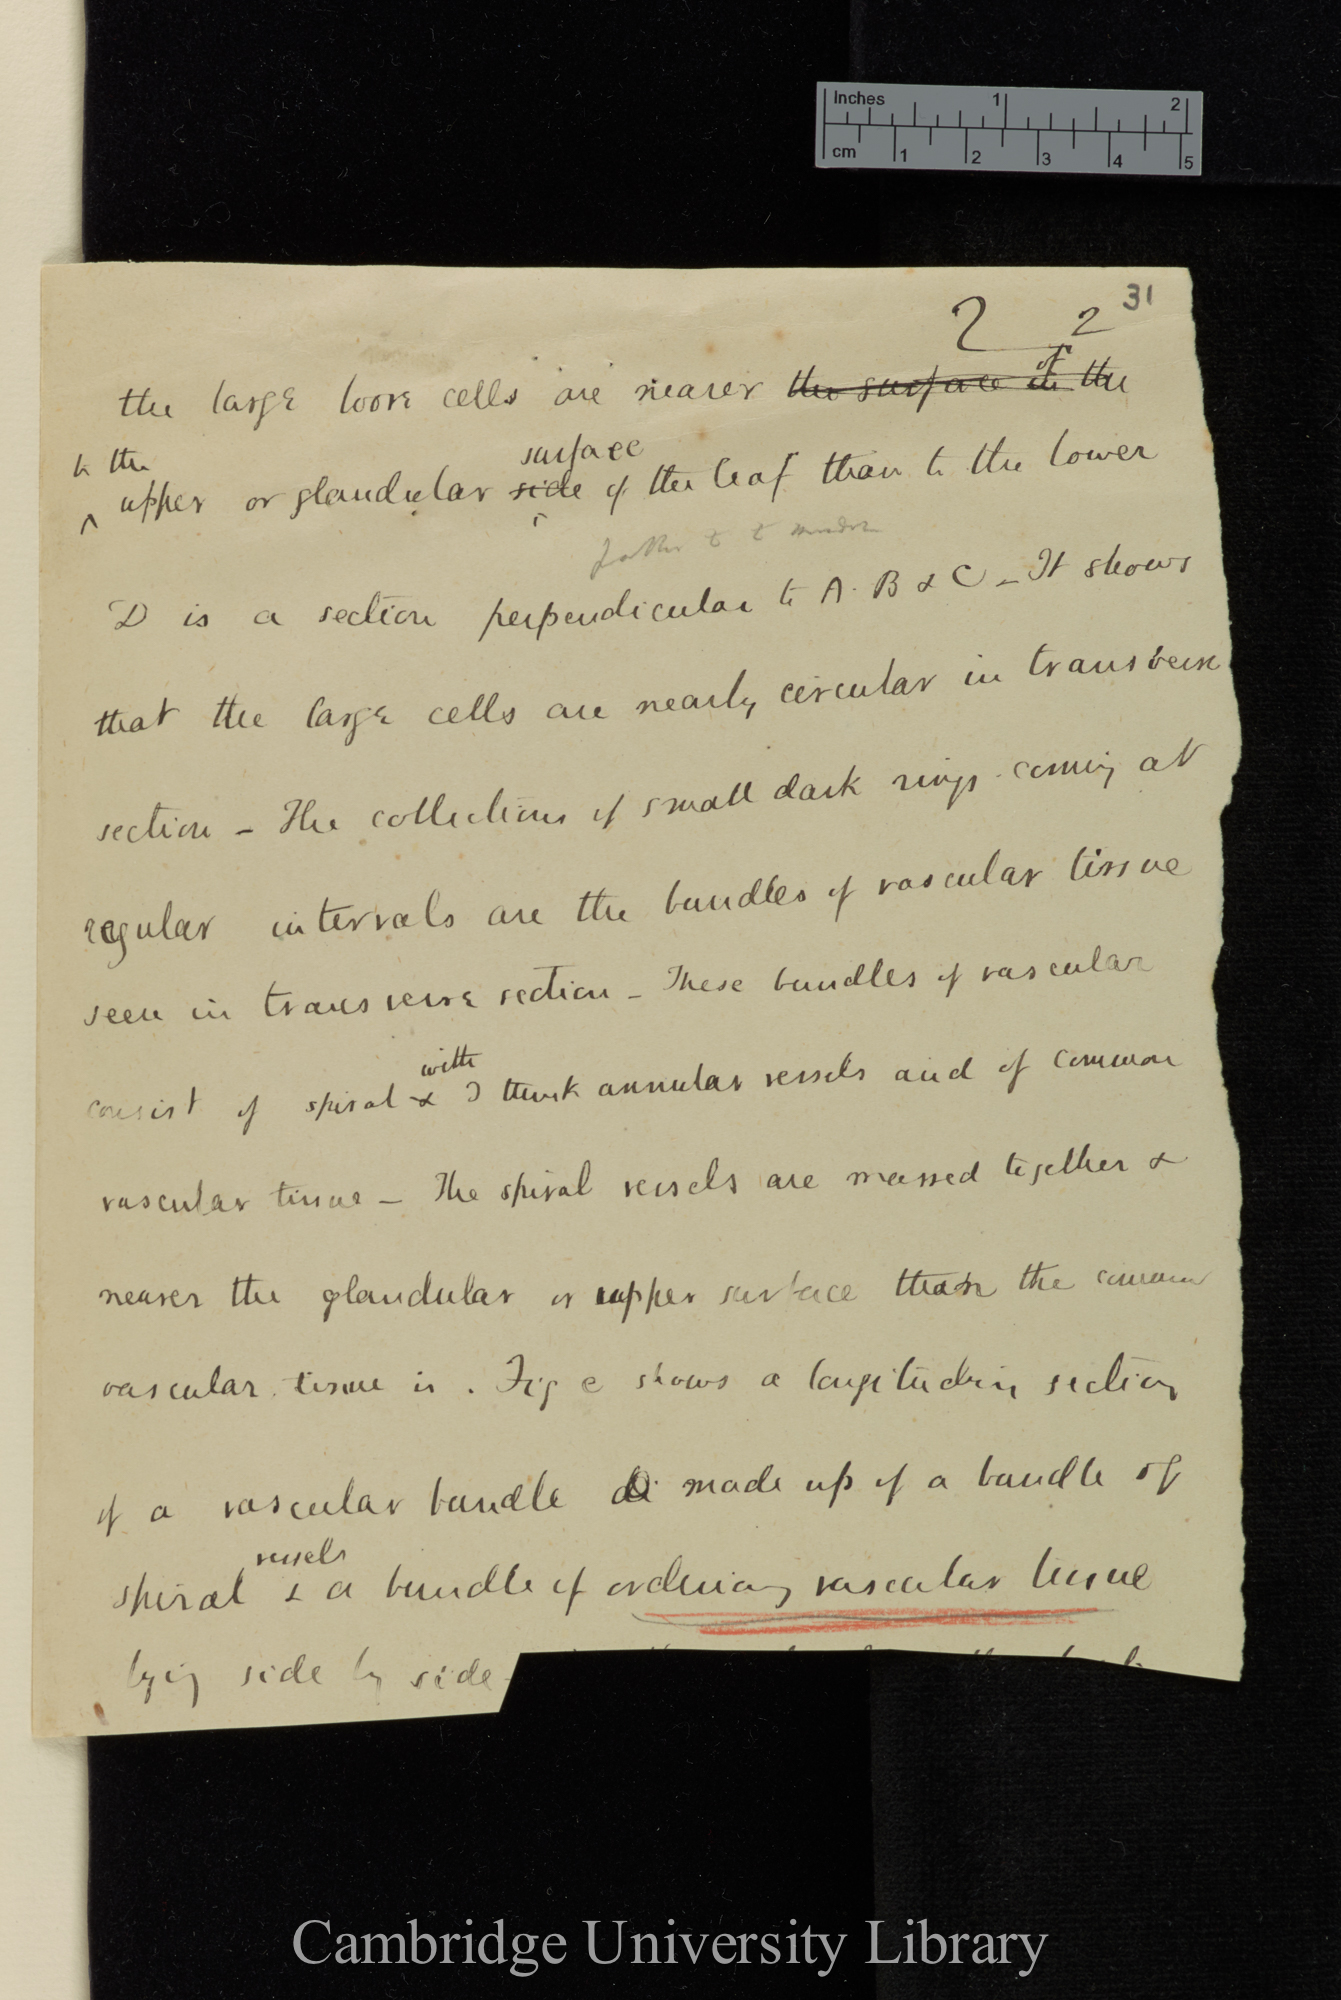 Inches 1 2
cm 1 2 3 4 5
31
2 2
the large loose cells are nearer the surface of the
to the
surface
upper or glandular side of the leaf than to the lower
D is a section perpendicular to A. B & C – It shows
that the large cells are nearly circular in transverse
section – The collections of small dark rings coming at
regular intervals are the bundles of vascular tissue
seen in transverse section – These bundles of vascular
with
consist of spiral & I think annular vessels and of common
vascular tissue – The spiral vessels are massed together &
nearer the glandular or upper surface than the common
vascular tissue is. Fig e shows a longitudin section
of a vascular bundle made up of a bundle of
vessels
spiral & a bundle of ordinary vascular tissue
lying side by side -
Cambridge University Library